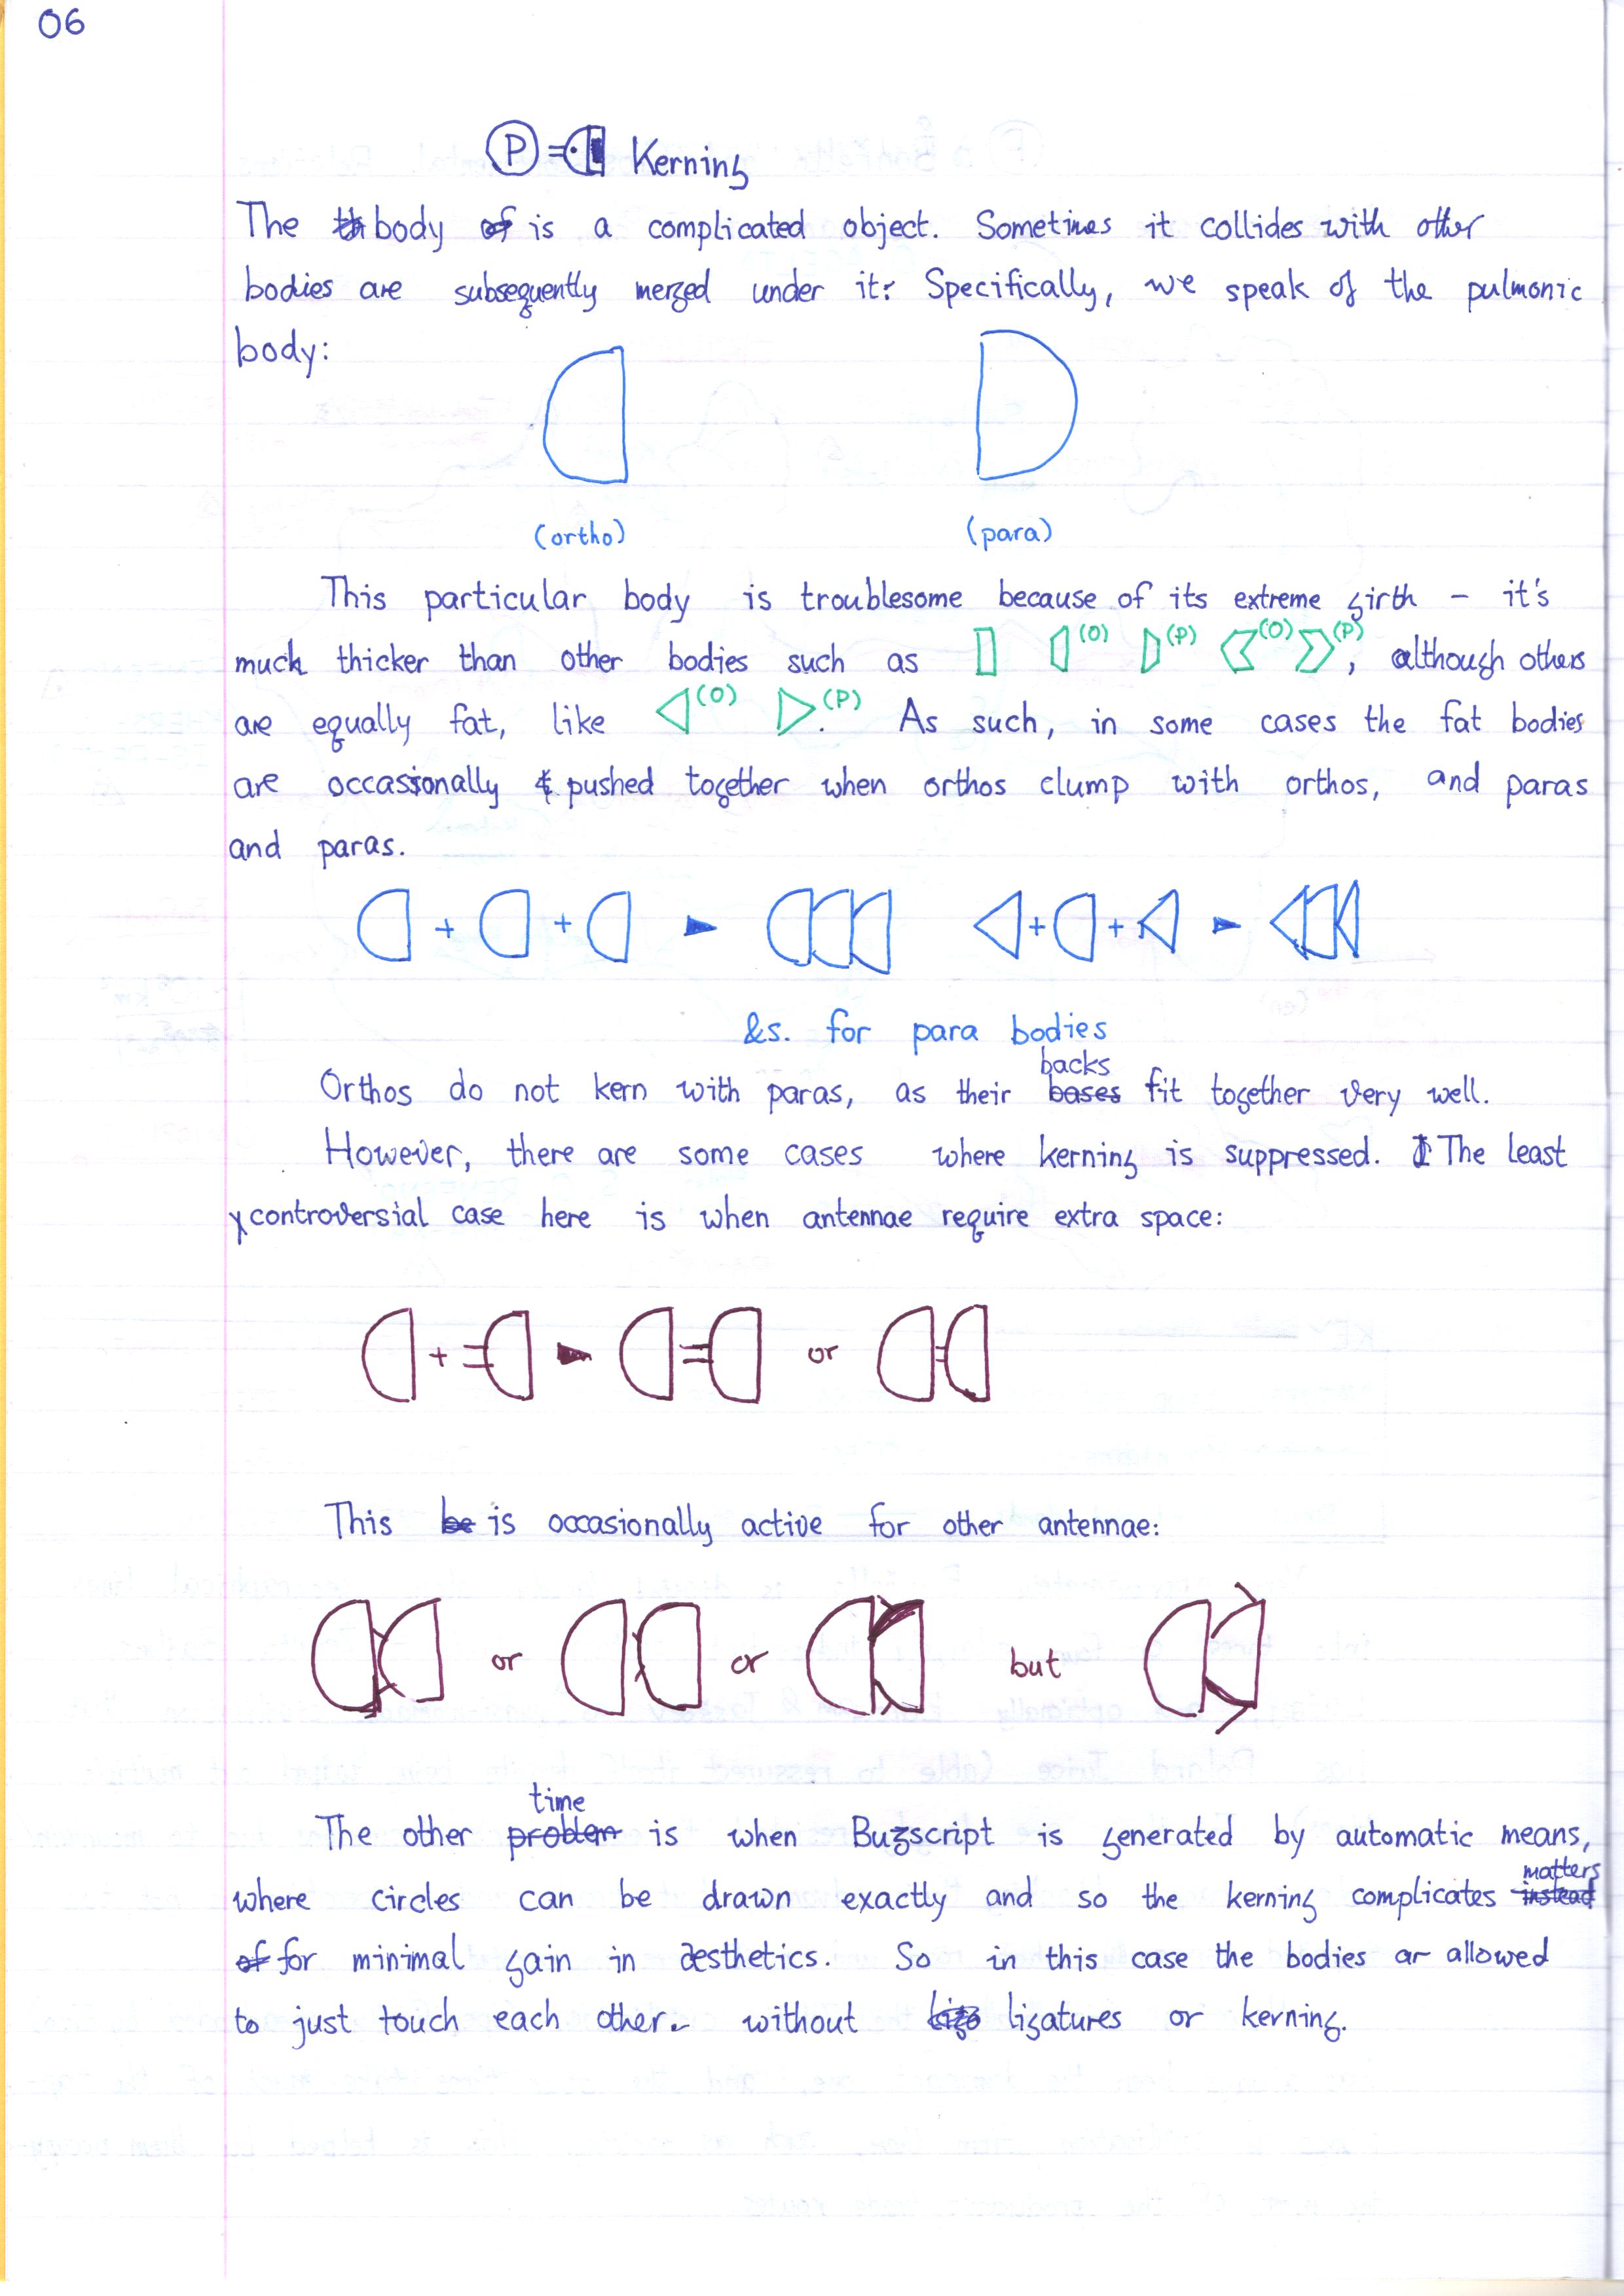 06
P Kerning
The body is a complicated object. Sometimes it collides with other
bodies are subsequently merged under it. Specifically, we speak of the pulmonic
body:
(ortho) (para)
This particular body is troublesome because of its extreme girth – it's
much thicker than other bodies such as (O) (P) (O) (P), although others
are equally fat, like (O) (P). As such, in some cases the fat bodies
are occassionally pushed together when orthos clump with orthos, and paras
and paras.
+ + +
+
&s. for para bodies
backs
Orthos do not kern with paras, as their bases fit together very well.
However, there are some cases where kerning is suppressed. The least
controversial case here is when antennae require extra space:
+ or
This be is occasionally active for other antennae:
or or but
time
The other problem is when Bugscript is generated by automatic means,
matters
where circles can be drawn exactly and so the kerning complicates instead
of for minimal gain in æsthetics. So in this case the bodies ar allowed
to just touch each other. without ligatures or kerning.